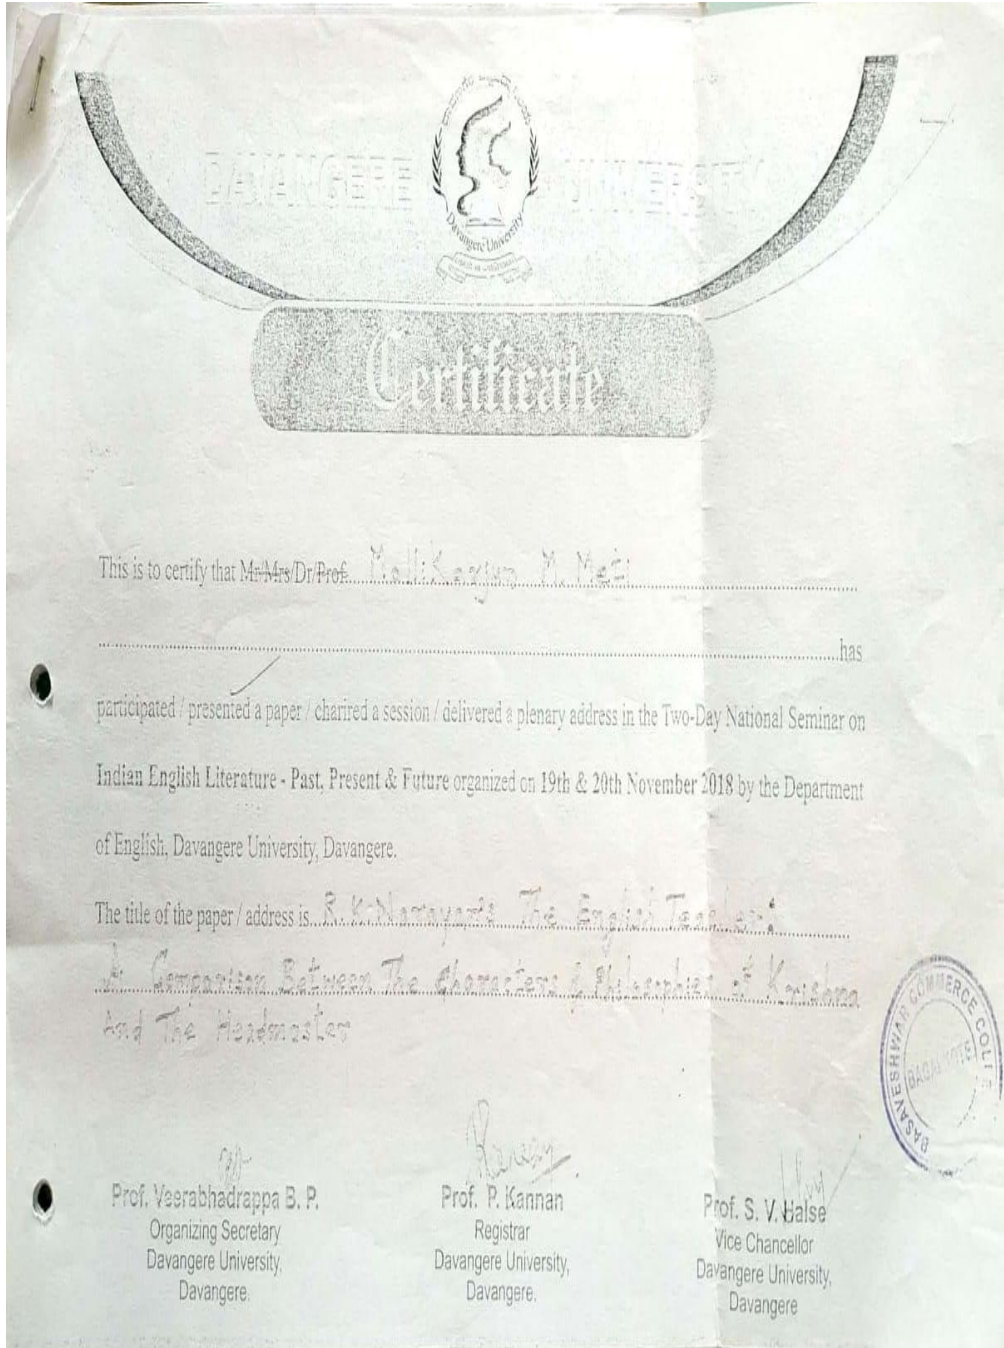 DAVANGERE UNIVERSITY
Davangere University
Certificate
This is to certify that Mr/Mrs/Dr/Prof. Mallikarjun M. Meti
has
participated / presented a paper / charired a session / delivered a plenary address in the Two-Day National Seminar on
Indian English Literature - Past, Present & Future organized on 19th & 20th November 2018 by the Department
of English, Davangere University, Davangere.
The title of the paper / address is R. K. Narayan's The English Teacher:
A Comparison Between The Characters & Philosophies of Krishna
And The Headmaster
BASAVESHWAR COMMERCE COLLE
BAGALKOTE
Prof. Veerabhadrappa B. P.
Organizing Secretary
Davangere University,
Davangere.
Prof. P. Kannan
Registrar
Davangere University,
Davangere.
Prof. S. V. Halse
Vice Chancellor
Davangere University,
Davangere